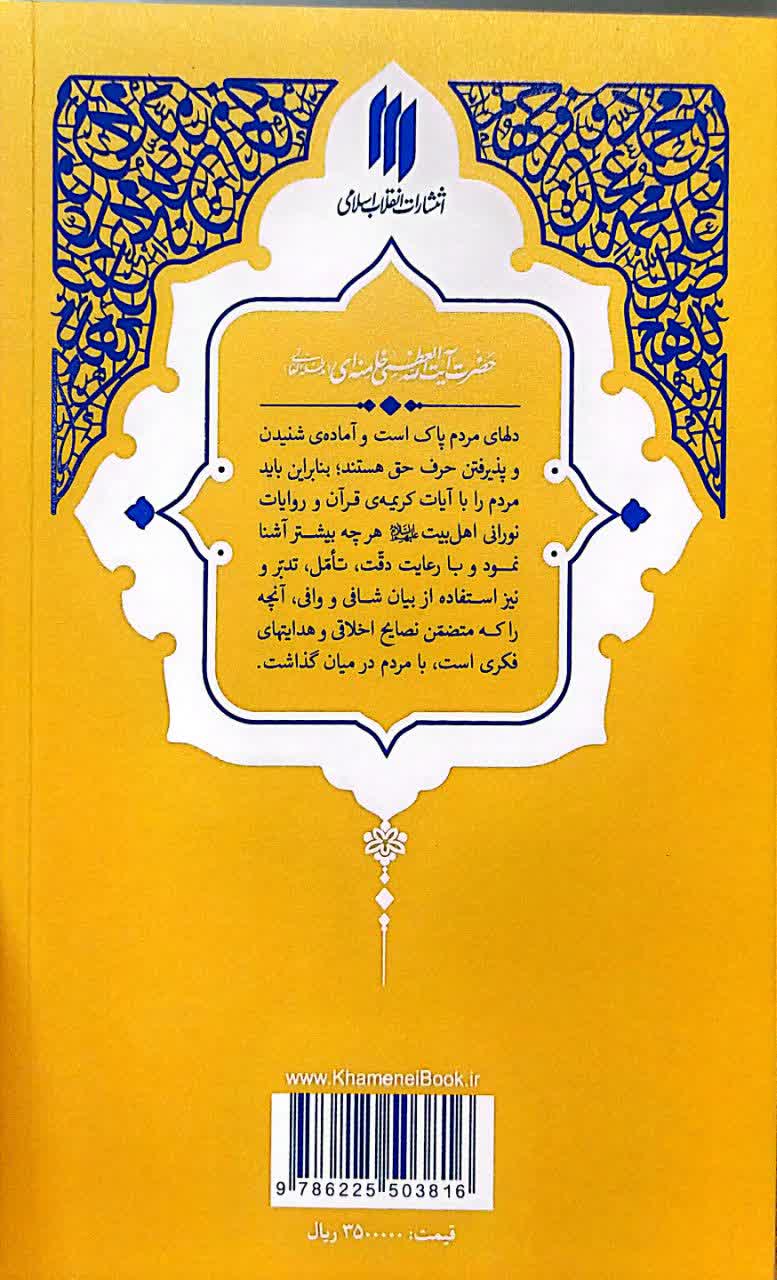 انتشارات انقلاب اسلامی
حضرت آیت‌الله‌العظمی خامنه‌ای (مدظله‌العالی)
دلهای مردم پاک است و آماده‌ی شنیدن
و پذیرفتن حرف حق هستند؛ بنابراین باید
مردم را با آیات کریمه‌ی قرآن و روایات
نورانی اهل‌بیت علیهم‌السلام هر چه بیشتر آشنا
نمود و با رعایت دقّت، تأمّل، تدبّر و
نیز استفاده از بیان شافی و وافی، آنچه
را که متضمّن نصایح اخلاقی و هدایتهای
فکری است، با مردم در میان گذاشت.
www.KhameneiBook.ir
9 786225 503816
قیمت: ۳۵۰۰۰۰۰ ریال